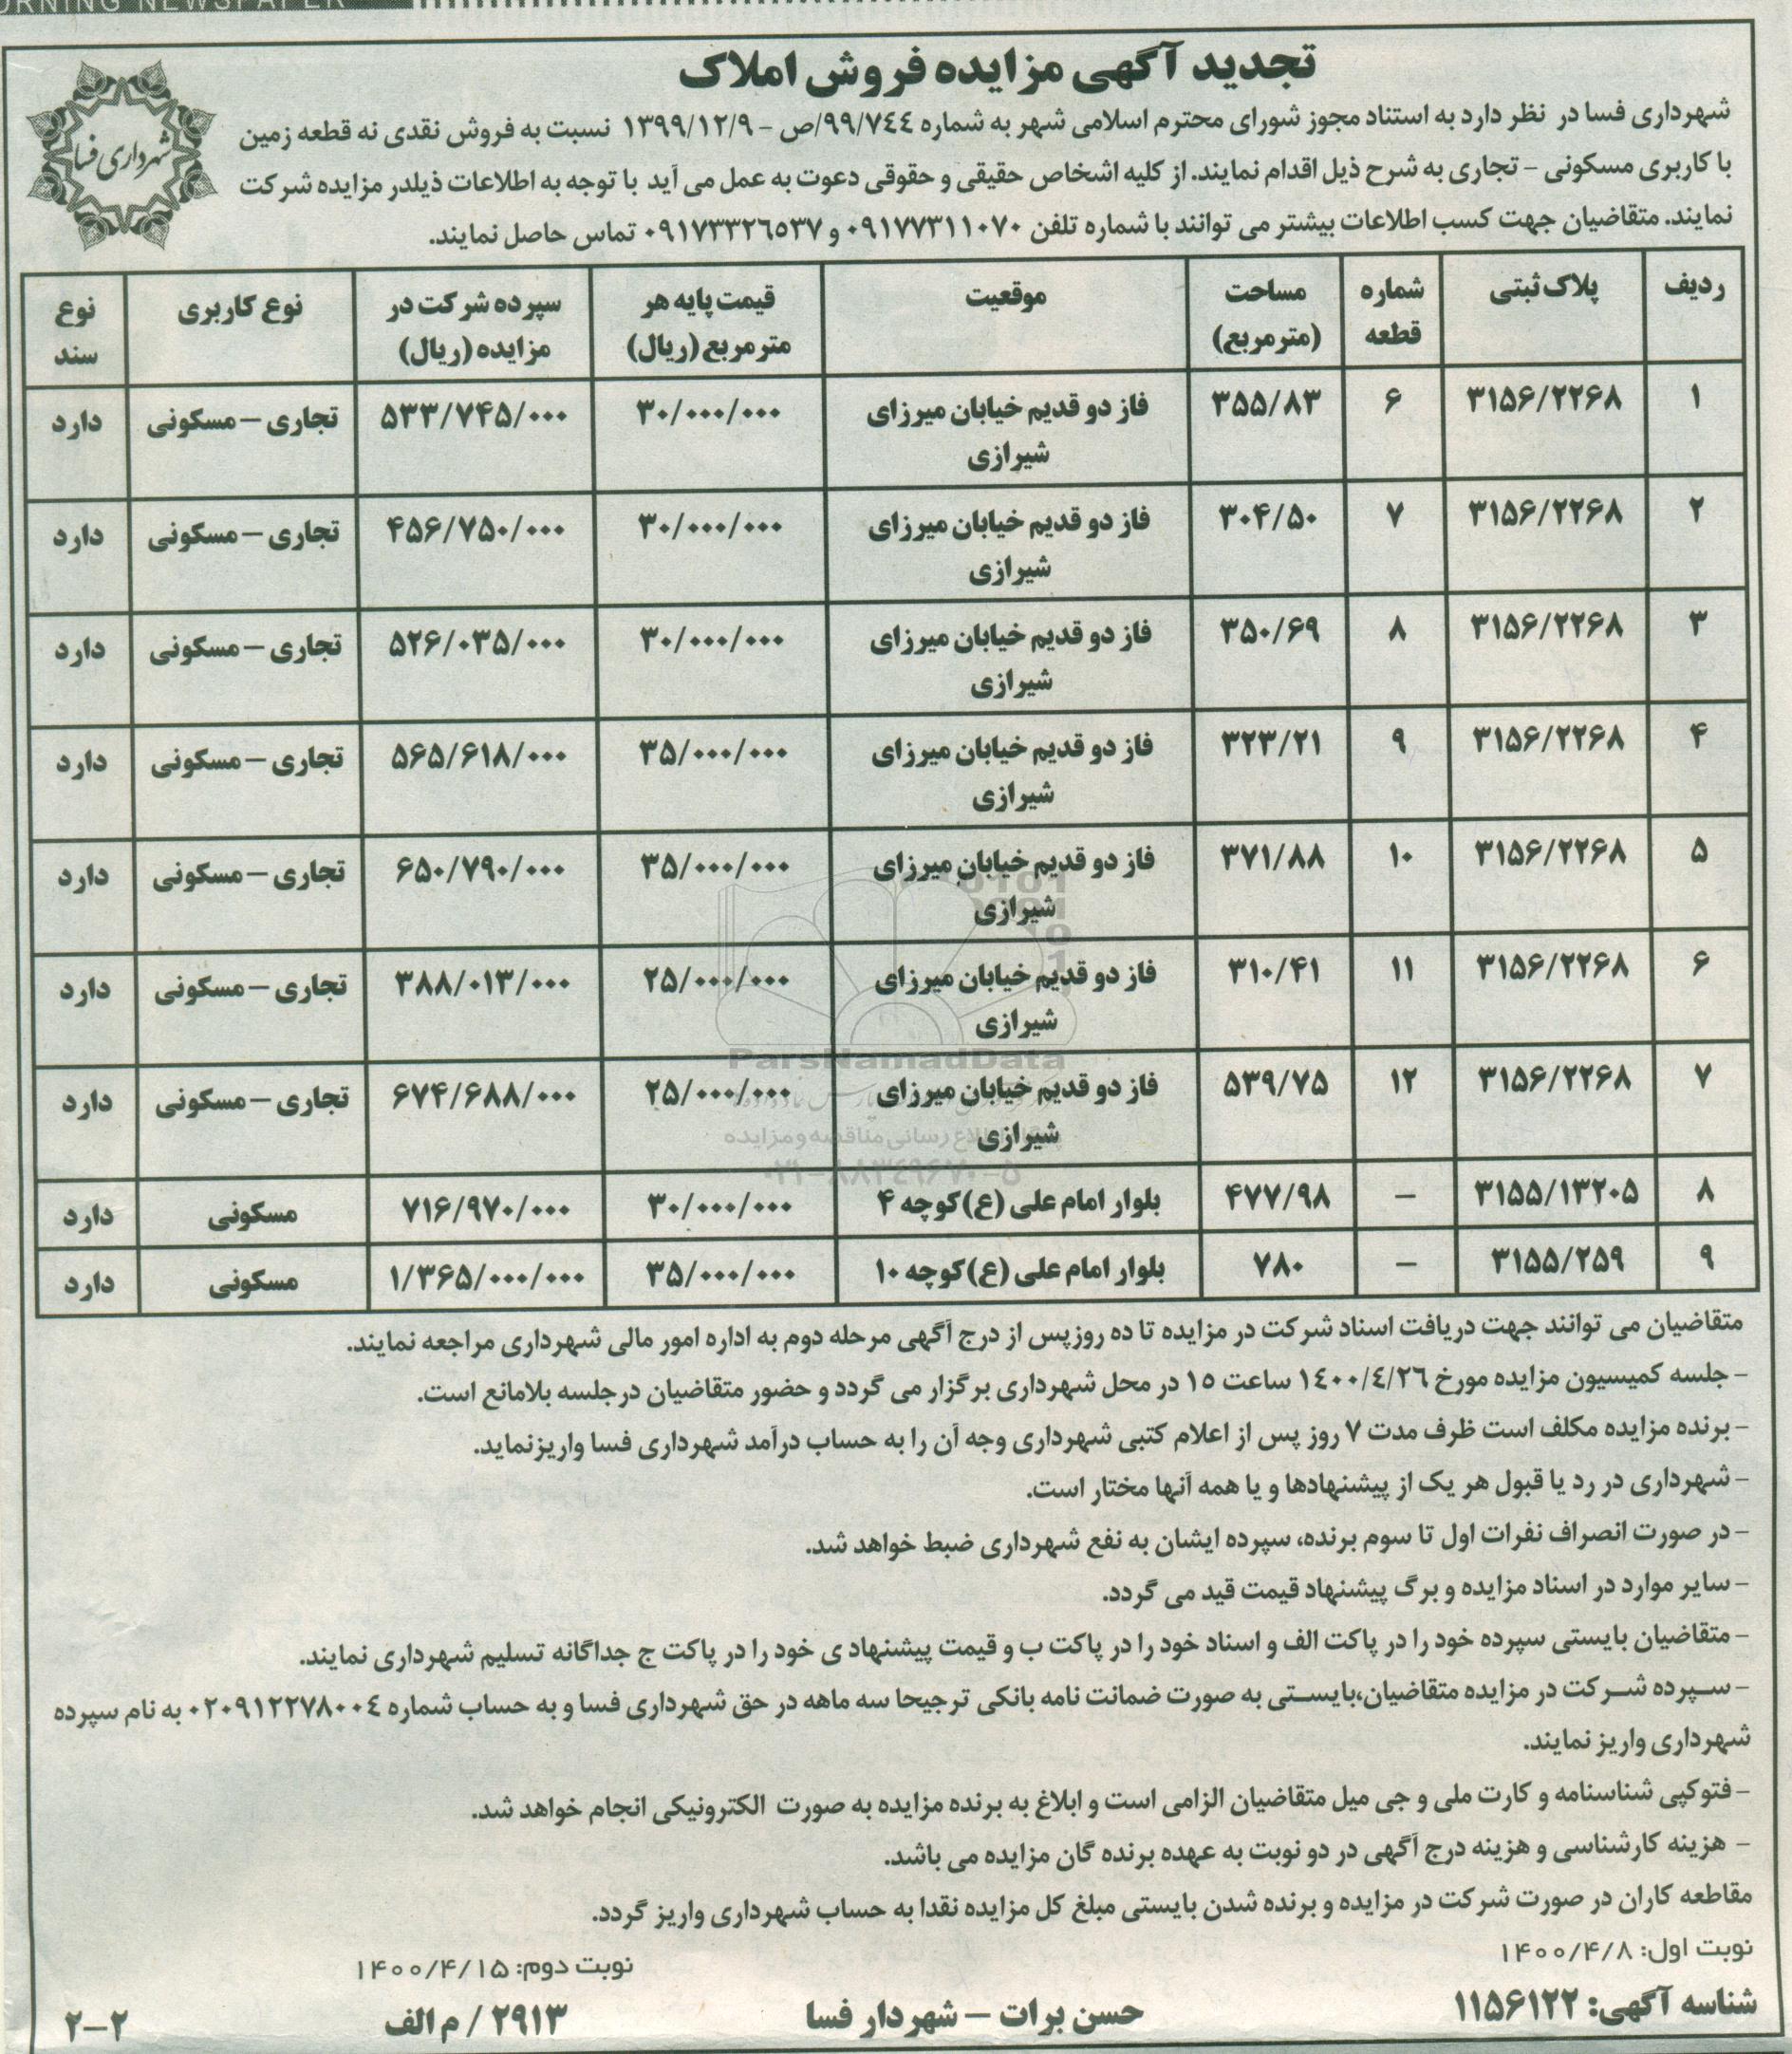 ORNING NEWSPAPER
شهرداری فسا
تجدید آگهی مزایده فروش املاک
شهرداری فسا در نظر دارد به استناد مجوز شورای محترم اسلامی شهر به شماره ۹۹/۷٤٤/ص - ۱۳۹۹/۱۲/۹ نسبت به فروش نقدی نه قطعه زمین
با کاربری مسکونی - تجاری به شرح ذیل اقدام نمایند. از کلیه اشخاص حقیقی و حقوقی دعوت به عمل می آید با توجه به اطلاعات ذیلدر مزایده شرکت
نمایند. متقاضیان جهت کسب اطلاعات بیشتر می توانند با شماره تلفن ۰۹۱۷۷۳۱۱۰۷۰ و ۰۹۱۷۳۳۲٦٥۳۷ تماس حاصل نمایند.
ردیف پلاک ثبتی شماره قطعه مساحت (مترمربع) موقعیت قیمت پایه هر مترمربع (ریال) سپرده شرکت در مزایده (ریال) نوع کاربری نوع سند
۱ ۳۱۵۶/۲۲۶۸ ۶ ۳۵۵/۸۳ فاز دو قدیم خیابان میرزای شیرازی ۳۰/۰۰۰/۰۰۰ ۵۳۳/۷۴۵/۰۰۰ تجاری – مسکونی دارد
۲ ۳۱۵۶/۲۲۶۸ ۷ ۳۰۴/۵۰ فاز دو قدیم خیابان میرزای شیرازی ۳۰/۰۰۰/۰۰۰ ۴۵۶/۷۵۰/۰۰۰ تجاری – مسکونی دارد
۳ ۳۱۵۶/۲۲۶۸ ۸ ۳۵۰/۶۹ فاز دو قدیم خیابان میرزای شیرازی ۳۰/۰۰۰/۰۰۰ ۵۲۶/۰۳۵/۰۰۰ تجاری – مسکونی دارد
۴ ۳۱۵۶/۲۲۶۸ ۹ ۳۲۳/۲۱ فاز دو قدیم خیابان میرزای شیرازی ۳۵/۰۰۰/۰۰۰ ۵۶۵/۶۱۸/۰۰۰ تجاری – مسکونی دارد
۵ ۳۱۵۶/۲۲۶۸ ۱۰ ۳۷۱/۸۸ فاز دو قدیم خیابان میرزای شیرازی ۳۵/۰۰۰/۰۰۰ ۶۵۰/۷۹۰/۰۰۰ تجاری – مسکونی دارد
۶ ۳۱۵۶/۲۲۶۸ ۱۱ ۳۱۰/۴۱ فاز دو قدیم خیابان میرزای شیرازی ۲۵/۰۰۰/۰۰۰ ۳۸۸/۰۱۳/۰۰۰ تجاری – مسکونی دارد
۷ ۳۱۵۶/۲۲۶۸ ۱۲ ۵۳۹/۷۵ فاز دو قدیم خیابان میرزای شیرازی ۲۵/۰۰۰/۰۰۰ ۶۷۴/۶۸۸/۰۰۰ تجاری – مسکونی دارد
۸ ۳۱۵۵/۱۳۲۰۵ – ۴۷۷/۹۸ بلوار امام علی (ع) کوچه ۴ ۳۰/۰۰۰/۰۰۰ ۷۱۶/۹۷۰/۰۰۰ مسکونی دارد
۹ ۳۱۵۵/۲۵۹ – ۷۸۰ بلوار امام علی (ع) کوچه ۱۰ ۳۵/۰۰۰/۰۰۰ ۱/۳۶۵/۰۰۰/۰۰۰ مسکونی دارد
ParsNamadData
اطلاع رسانی مناقصه و مزایده
۰۲۱-۸۸۳٤۹٦۷۰-۵
متقاضیان می توانند جهت دریافت اسناد شرکت در مزایده تا ده روزپس از درج آگهی مرحله دوم به اداره امور مالی شهرداری مراجعه نمایند.
- جلسه کمیسیون مزایده مورخ ۱٤۰۰/٤/۲٦ ساعت ۱٥ در محل شهرداری برگزار می گردد و حضور متقاضیان درجلسه بلامانع است.
- برنده مزایده مکلف است ظرف مدت ۷ روز پس از اعلام کتبی شهرداری وجه آن را به حساب درآمد شهرداری فسا واریزنماید.
- شهرداری در رد یا قبول هر یک از پیشنهادها و یا همه آنها مختار است.
- در صورت انصراف نفرات اول تا سوم برنده، سپرده ایشان به نفع شهرداری ضبط خواهد شد.
- سایر موارد در اسناد مزایده و برگ پیشنهاد قیمت قید می گردد.
- متقاضیان بایستی سپرده خود را در پاکت الف و اسناد خود را در پاکت ب و قیمت پیشنهاد ی خود را در پاکت ج جداگانه تسلیم شهرداری نمایند.
- سـپرده شـرکت در مزایده متقاضیان،بایسـتی به صورت ضمانت نامه بانکی ترجیحا سه ماهه در حق شهرداری فسا و به حساب شماره ۰۲۰۹۱۲۲۷۸۰۰٤ به نام سپرده
شهرداری واریز نمایند.
- فتوکپی شناسنامه و کارت ملی و جی میل متقاضیان الزامی است و ابلاغ به برنده مزایده به صورت الکترونیکی انجام خواهد شد.
- هزینه کارشناسی و هزینه درج آگهی در دو نوبت به عهده برنده گان مزایده می باشد.
مقاطعه کاران در صورت شرکت در مزایده و برنده شدن بایستی مبلغ کل مزایده نقدا به حساب شهرداری واریز گردد.
نوبت اول: ۱۴۰۰/۴/۸ نوبت دوم: ۱۴۰۰/۴/۱۵
شناسه آگهی: ۱۱۵۶۱۲۲ حسن برات – شهردار فسا ۲۹۱۳ / م الف ۲–۲